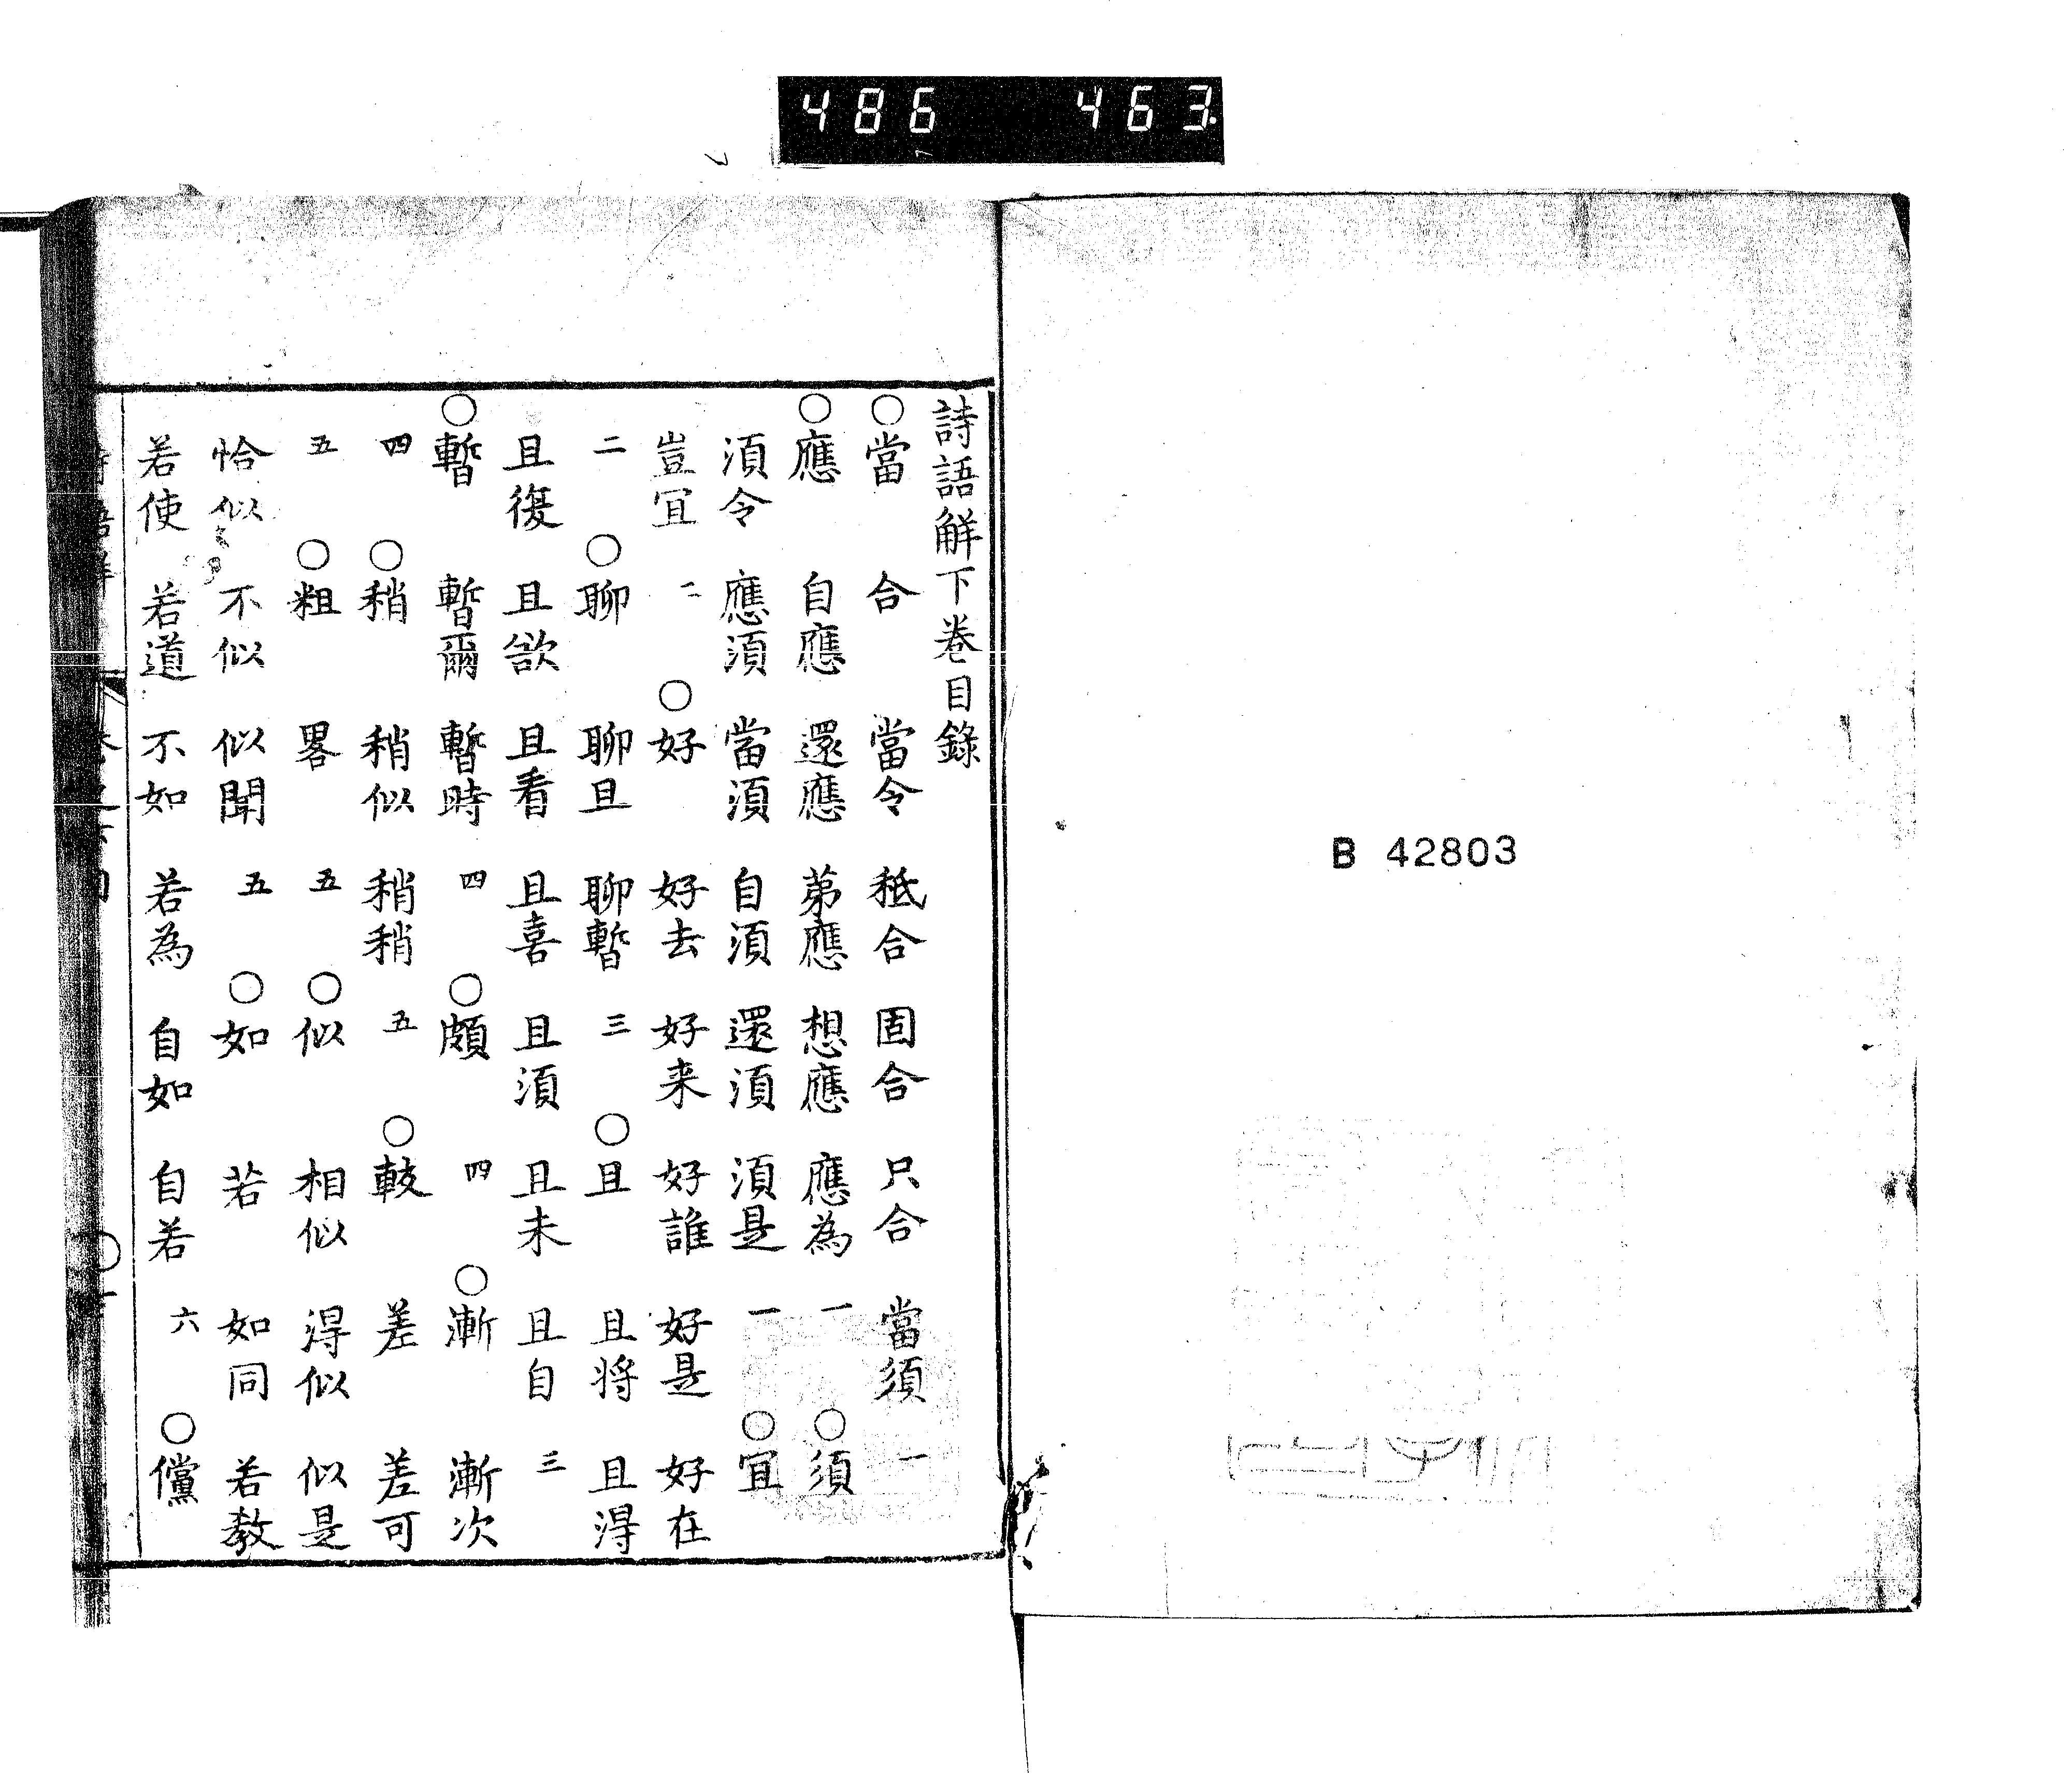 486 463.
B 42803
詩語解下卷目錄
○當 合 當令 秪合 固合 只合 當須 一
○應 自應 還應 苐應 想應 應為 一 ○須
須令 應須 當須 自須 還須 須是 一 ○宜
豈宜 二 ○好 好去 好来 好誰 好是 好在
二 ○聊 聊且 聊暫 三 ○且 且将 且淂
且復 且欲 且看 且喜 且須 且未 且自 三
○暫 暫爾 暫時 四 ○頗 四 ○漸 漸次
四 ○稍 稍似 稍稍 五 ○較 差 差可
五 ○粗 畧 五 ○似 相似 淂似 似是
恰似 不似 似聞 五 ○如 若 如同 若教
若使 若道 不如 若為 自如 自若 六 ○儻